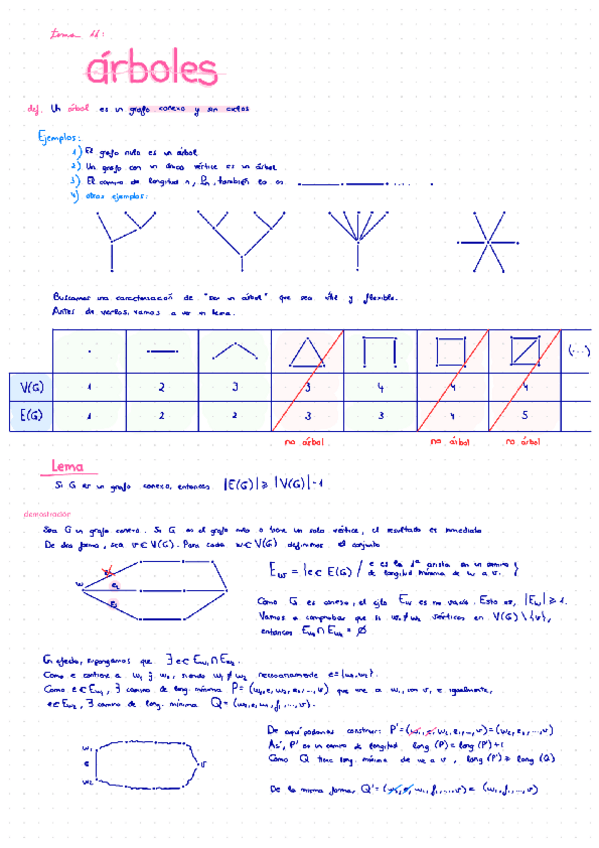 tema 11:
árboles
def. Un árbol es un grafo conexo y sin ciclos
Ejemplos:
1) El grafo nulo es un árbol
2) Un grafo con un único vértice es un árbol
3) El camino de longitud n, Pn, también lo es
4) otros ejemplos:
Buscamos una caracterización de "ser un árbol" que sea útil y flexible.
Antes de verlos, vamos a ver un lema.
(...)
V(G) 1 2 3 3 4 4 4
E(G) 1 2 2 3 3 4 5
no árbol no árbol no árbol
Lema
Si G es un grafo conexo, entonces |E(G)| ≥ |V(G)| - 1
demostración
Sea G un grafo conexo. Si G es el grafo nulo o tiene un solo vértice, el resultado es inmediato
De otra forma, sea v ∈ V(G). Para cada w ∈ V(G) definimos el conjunto
E_w = { e ∈ E(G) / e es la 1ª arista en un camino de longitud mínima de w a v. }
w e₂
Como G es conexo, el cjto E_w es no vacío. Esto es, |E_w| ≥ 1.
Vamos a comprobar que si w₁ ≠ w₂ vértices en V(G) \ {v},
entonces E_w₁ ∩ E_w₂ = ∅
En efecto, supongamos que ∃ e ∈ E_w₁ ∩ E_w₂.
Como e contiene a w₁ y w₂, siendo w₁ ≠ w₂ necesariamente e = {w₁, w₂}.
Como e ∈ E_w₁, ∃ camino de long. mínima P = (w₁, e, w₂, e₁, ..., v) que une a w₁ con v, e igualmente,
e ∈ E_w₂, ∃ camino de long. mínima Q = (w₂, e, w₁, f₁, ..., v).
De aquí podemos construir: P' = (w₁, e, w₂, e₁, ..., v) = (w₂, e₁, ..., v)
Así, P' es un camino de longitud long (P) = long (P') + 1
Como Q tiene long. mínima de w₂ a v, long (P') ≥ long (Q)
w₁
e v
w₂
De la misma forma, Q' = (w₂, e, w₁, f₁, ..., v) = (w₁, f₁, ..., v)